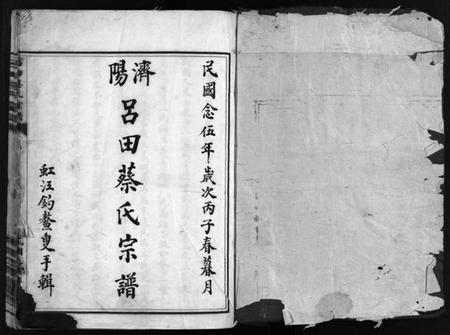 民國念伍年歲次丙子春暮月
濟陽
呂田蔡氏宗譜
虹汪鈎鰲叟手輯